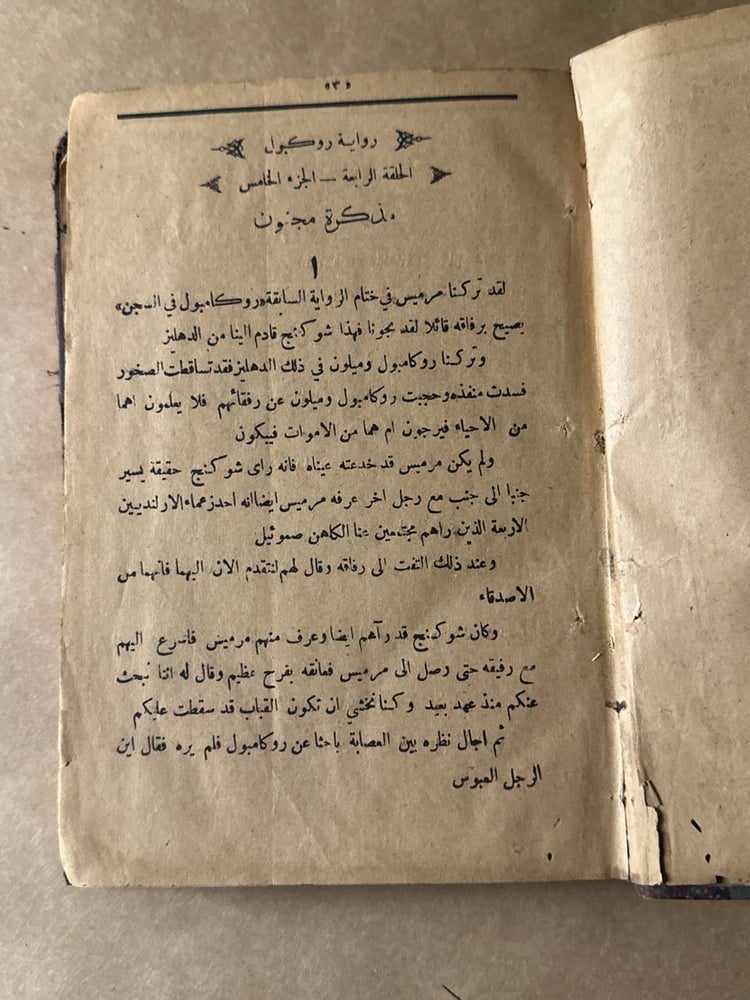 «٣»
رواية روكمبول
الحلقة الرابعة — الجزء الخامس
مذكرة مجنون
١
لقد تركنا مرميس في ختام الرواية السابقة «روكامبول في السجن»
يصيح برفاقه قائلا لقد نجونا فهذا شوكنج قادم الينا من الدهليز
وتركنا روكامبول وميلون في ذلك الدهليز فقد تساقطت الصخور
فسدت منفذه وحجبت روكامبول وميلون عن رفقائهم فلا يعلمون اهما
من الاحياء فيرجون ام هما من الاموات فيبكون
ولم يكن مرميس قد خدعته عيناه فانه راى شوكنج حقيقة يسير
جنبا الى جنب مع رجل اخر عرفه مرميس ايضا انه احد زعماء الارلنديين
الاربعة الذين راهم مجتمعين عنا الكاهن صموئيل
وعند ذلك التفت الى رفاقه وقال لهم لنتقدم الان اليهما فانهما من
الاصدقاء
وكان شوكنج قد رآهم ايضا وعرف منهم مرميس فاسرع اليهم
مع رفيقه حتى وصل الى مرميس فعانقه بفرح عظيم وقال له اننا نبحث
عنكم منذ عهد بعيد وكنا نخشى ان تكون القباب قد سقطت عليكم
ثم اجال نظره بين العصابة باحثا عن روكامبول فلم يره فقال اين
الرجل العبوس